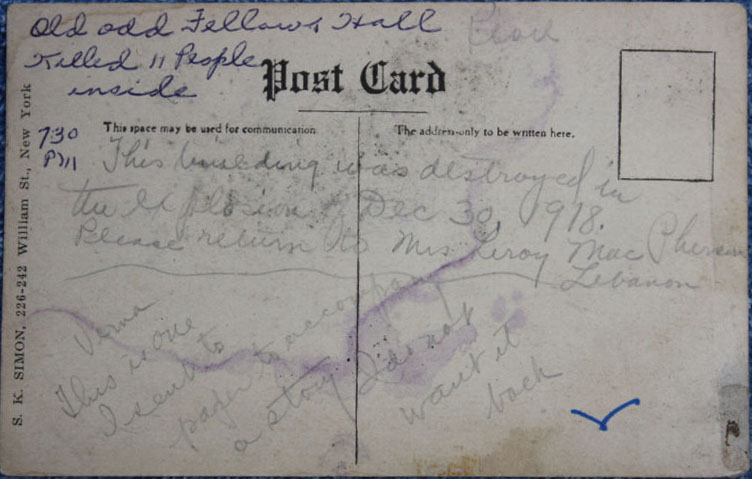 Old odd Fellows Hall
Killed 11 People
inside
Post Card
This space may be used for communication
The address only to be written here.
730
PM
This building was destroyed in
the Explosion Dec 30, 1918.
Please return to Mrs Leroy MacPherson
Lebanon
Verna
This is one
I sent to
paper to accompany
a story I do not
want it
back
S. K. SIMON, 226-242 William St., New York